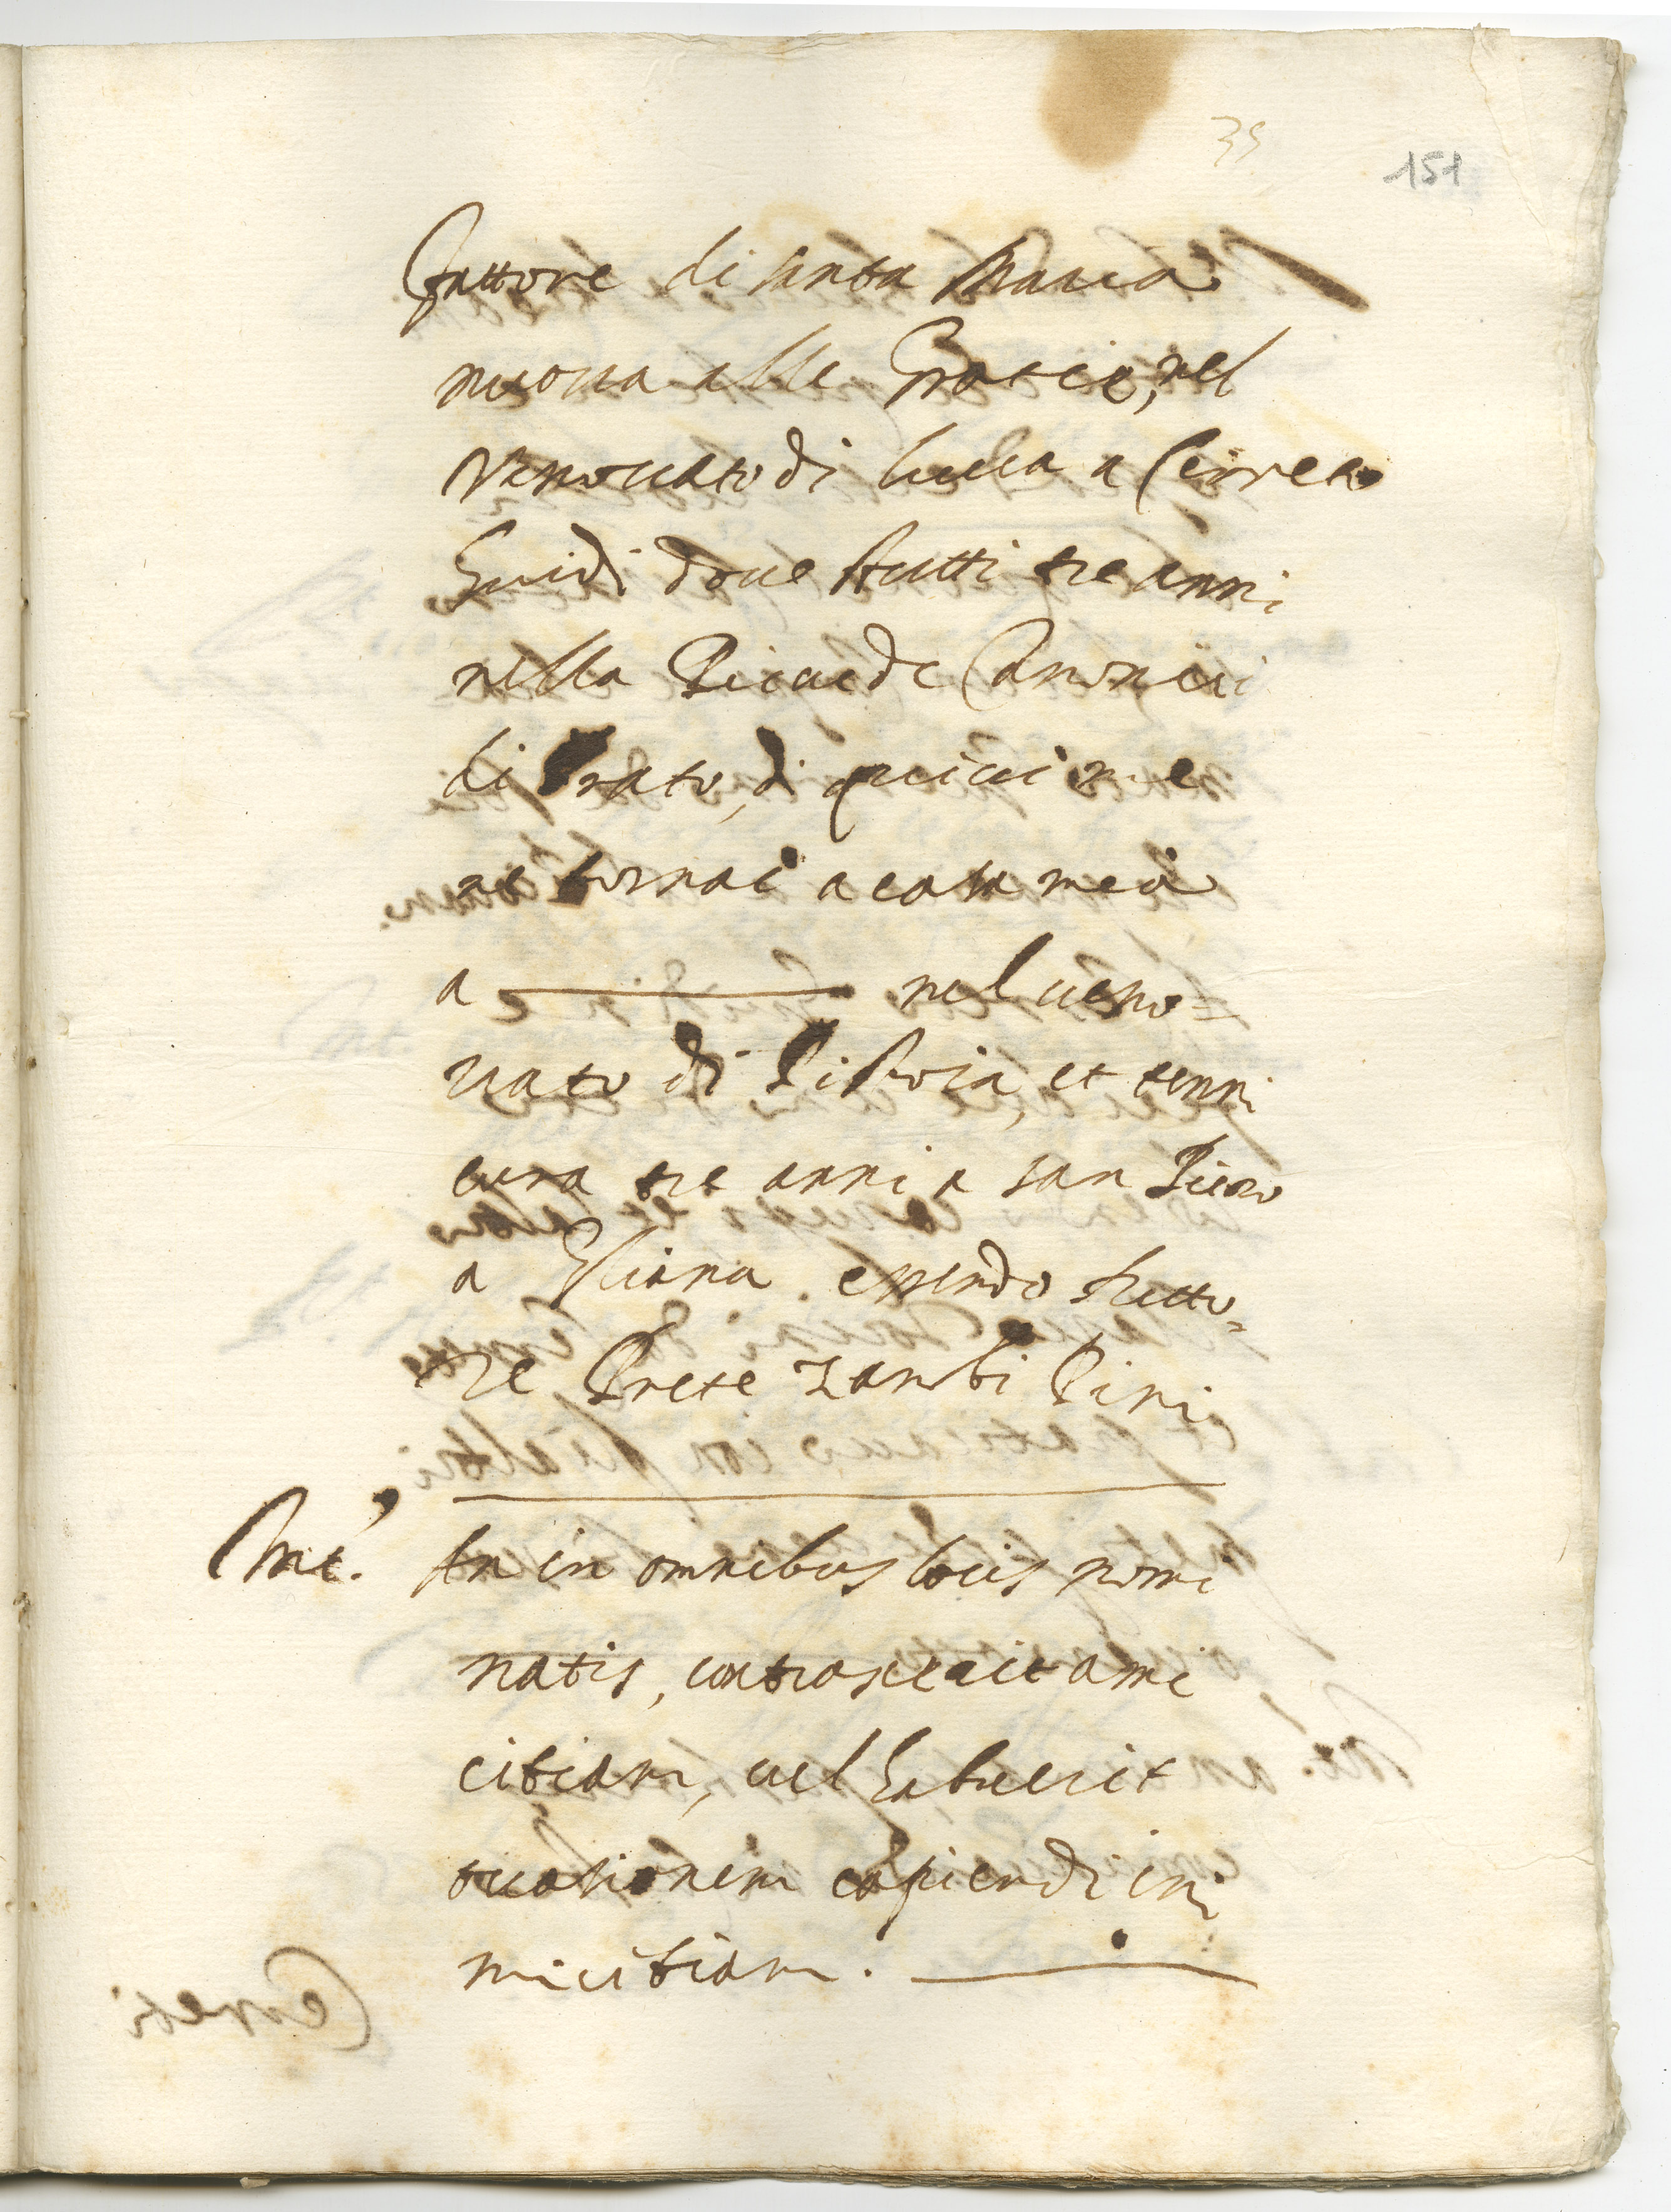 39
151
fattore di santa Maria
nuova alle Gratie, nel
Vescovato di Lucca a Cerreto
Guidi dove stetti tre anni
nella Pieve de Canonici
di Prato, di quivi me
ne tornai a casa mia
a nel vesco=
vato di Pistoia, et tenni
cura tre anni a san Piero
a Sliana essendo Retto=
re Prete Zanobi Pini
Int. An in omnibus locis nomi
natis, contraxerit ami
citiam, vel habuerit
occasionem capiendi ini
micitiam.